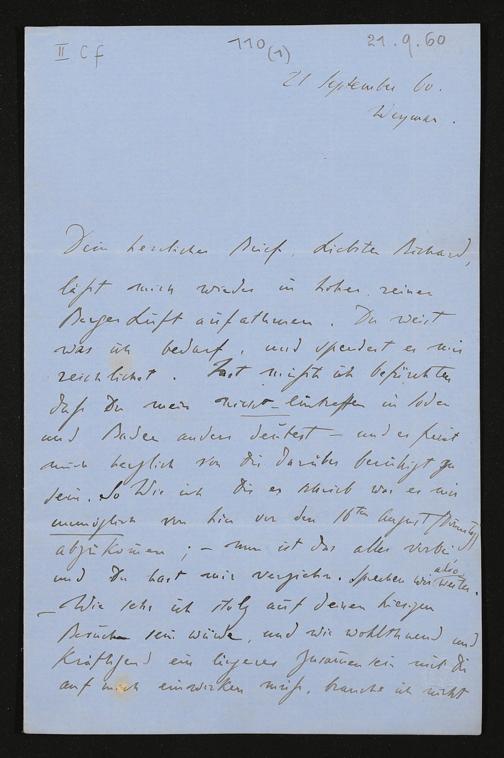 II C f
110
(1)
21.9.60
21 September 60.
Weymar.
Dein herrlicher Brief, Liebster Richard,
läßt mich wieder in hoher, reiner
Berges Luft aufathmen. Du weist
was ich bedarf, und spendest es mir
reichlichst. Fast mußte ich befürchten
daß Du mein nicht-eintreffen in Soden
und Baden anders deutest – und es freut
mich herzlich von Dir darüber beruhigt zu
sein. So Wie ich Dir es schrieb war es mir
unmöglich von hier vor den 16ten August (Dienstag)
abzukommen; – nun ist das alles vorbei
und Du hast mir verziehen. Sprechen wir also weiter.
– Wie sehr ich stolz auf deinen hiesigen
Besuch sein würde, und wie wohlthuend und
Kräftigend ein längeres Zusammensein mit Dir
auf mich einwirken muß, brauche ich nicht